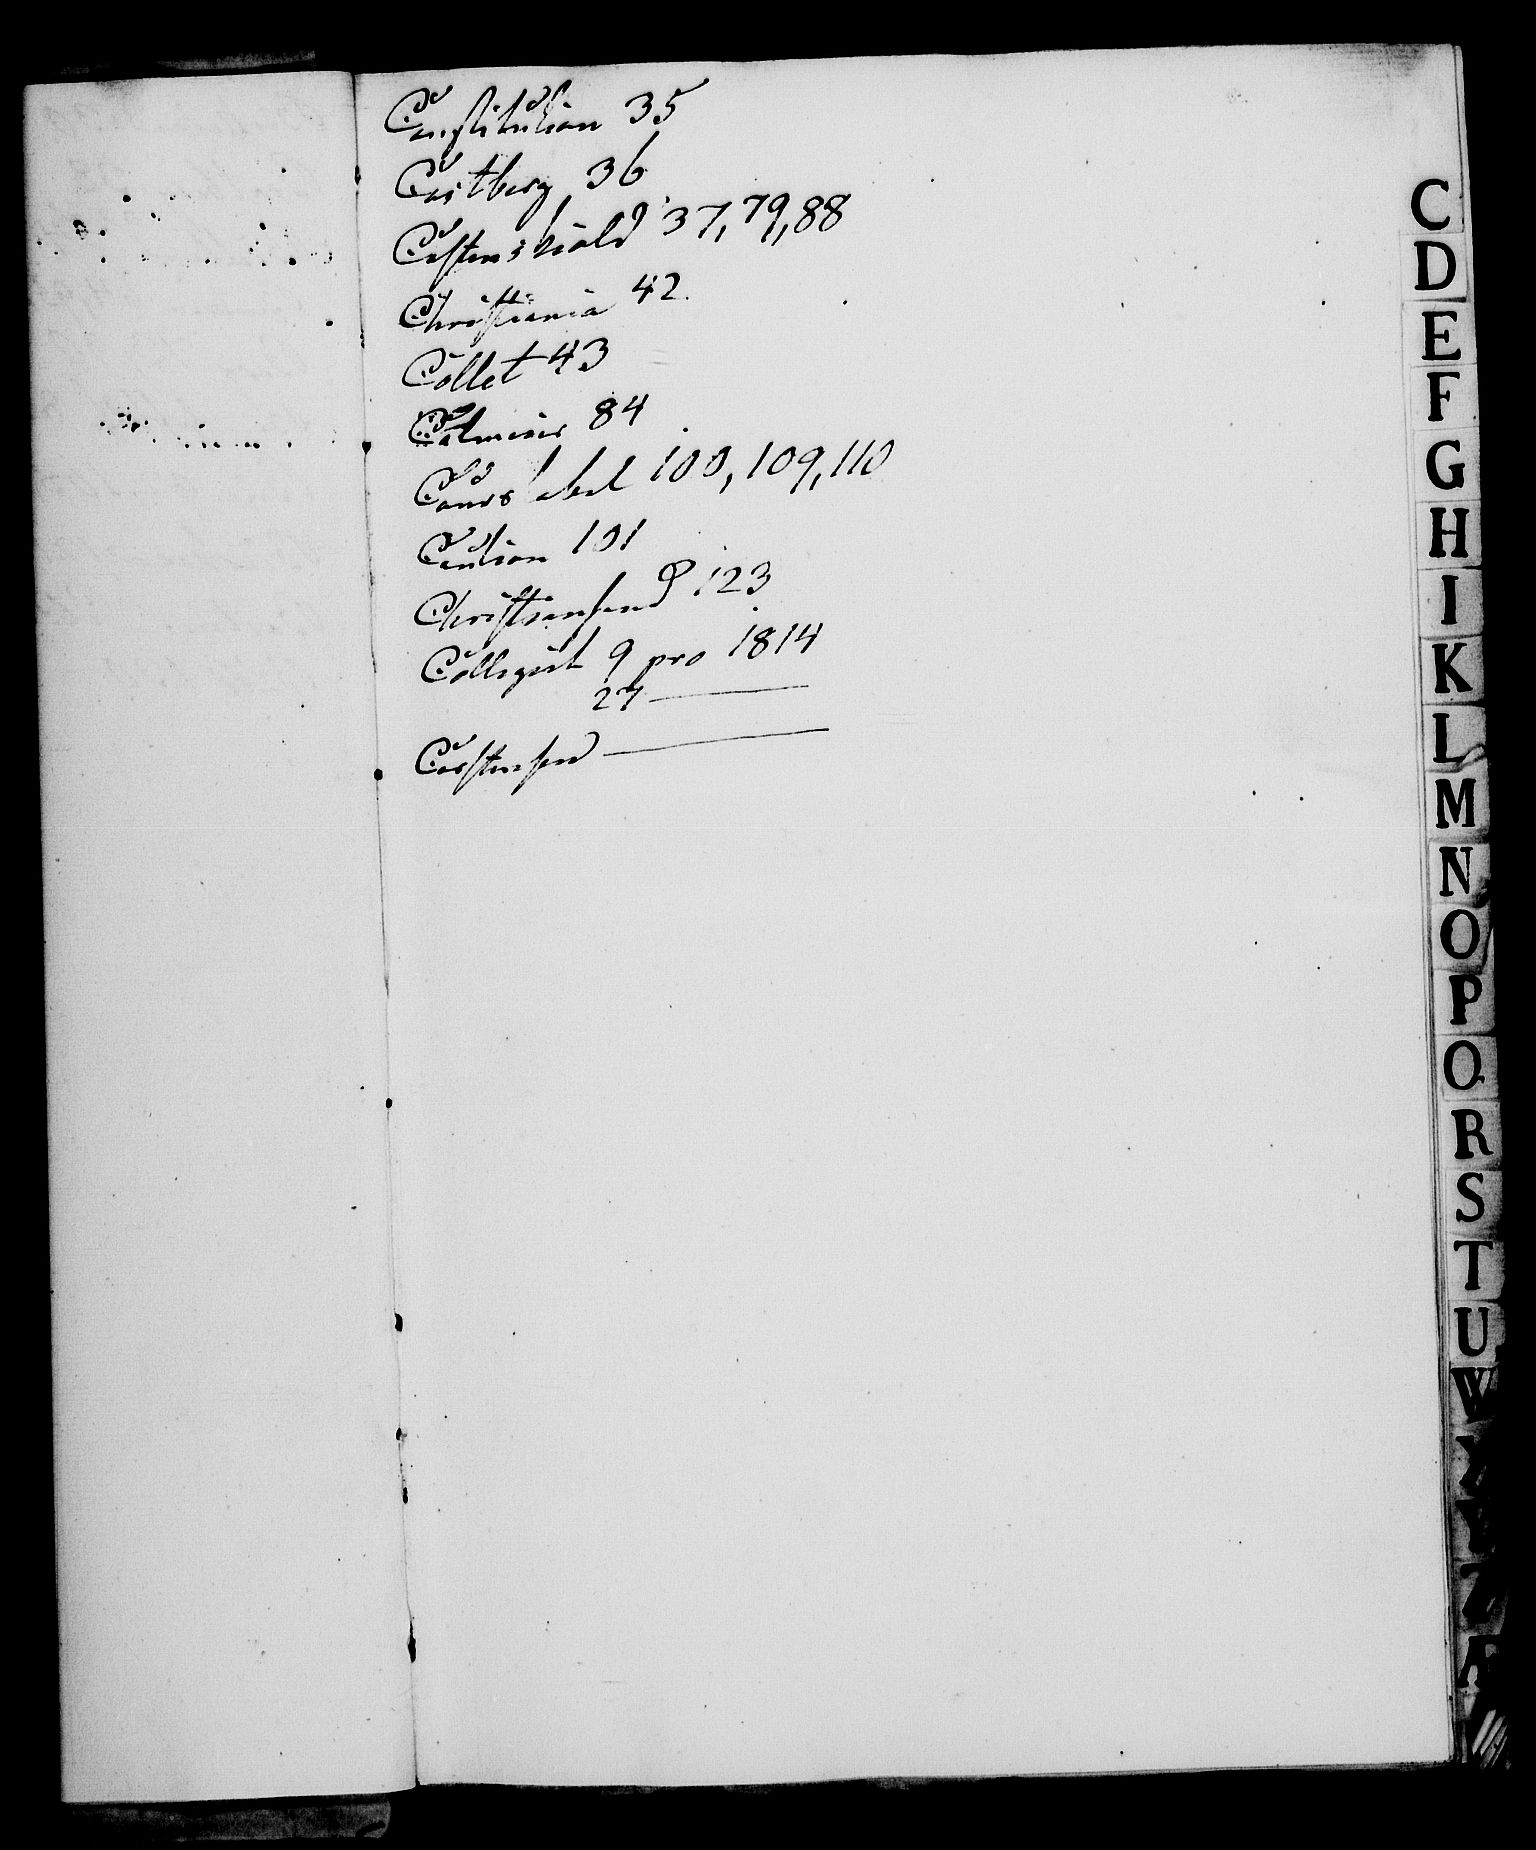 Constitution 35
Castberg 36
Castenskiold 37, 79, 88
Christiania 42.
Collet 43
84
Cours 100, 109, 110
Caution 101
Christiansand 123
Collegiet 9 pro 1814
27 —
Carstensen —
C
D
E
F
G
H
I
K
L
M
N
O
P
Q
R
S
T
U
W